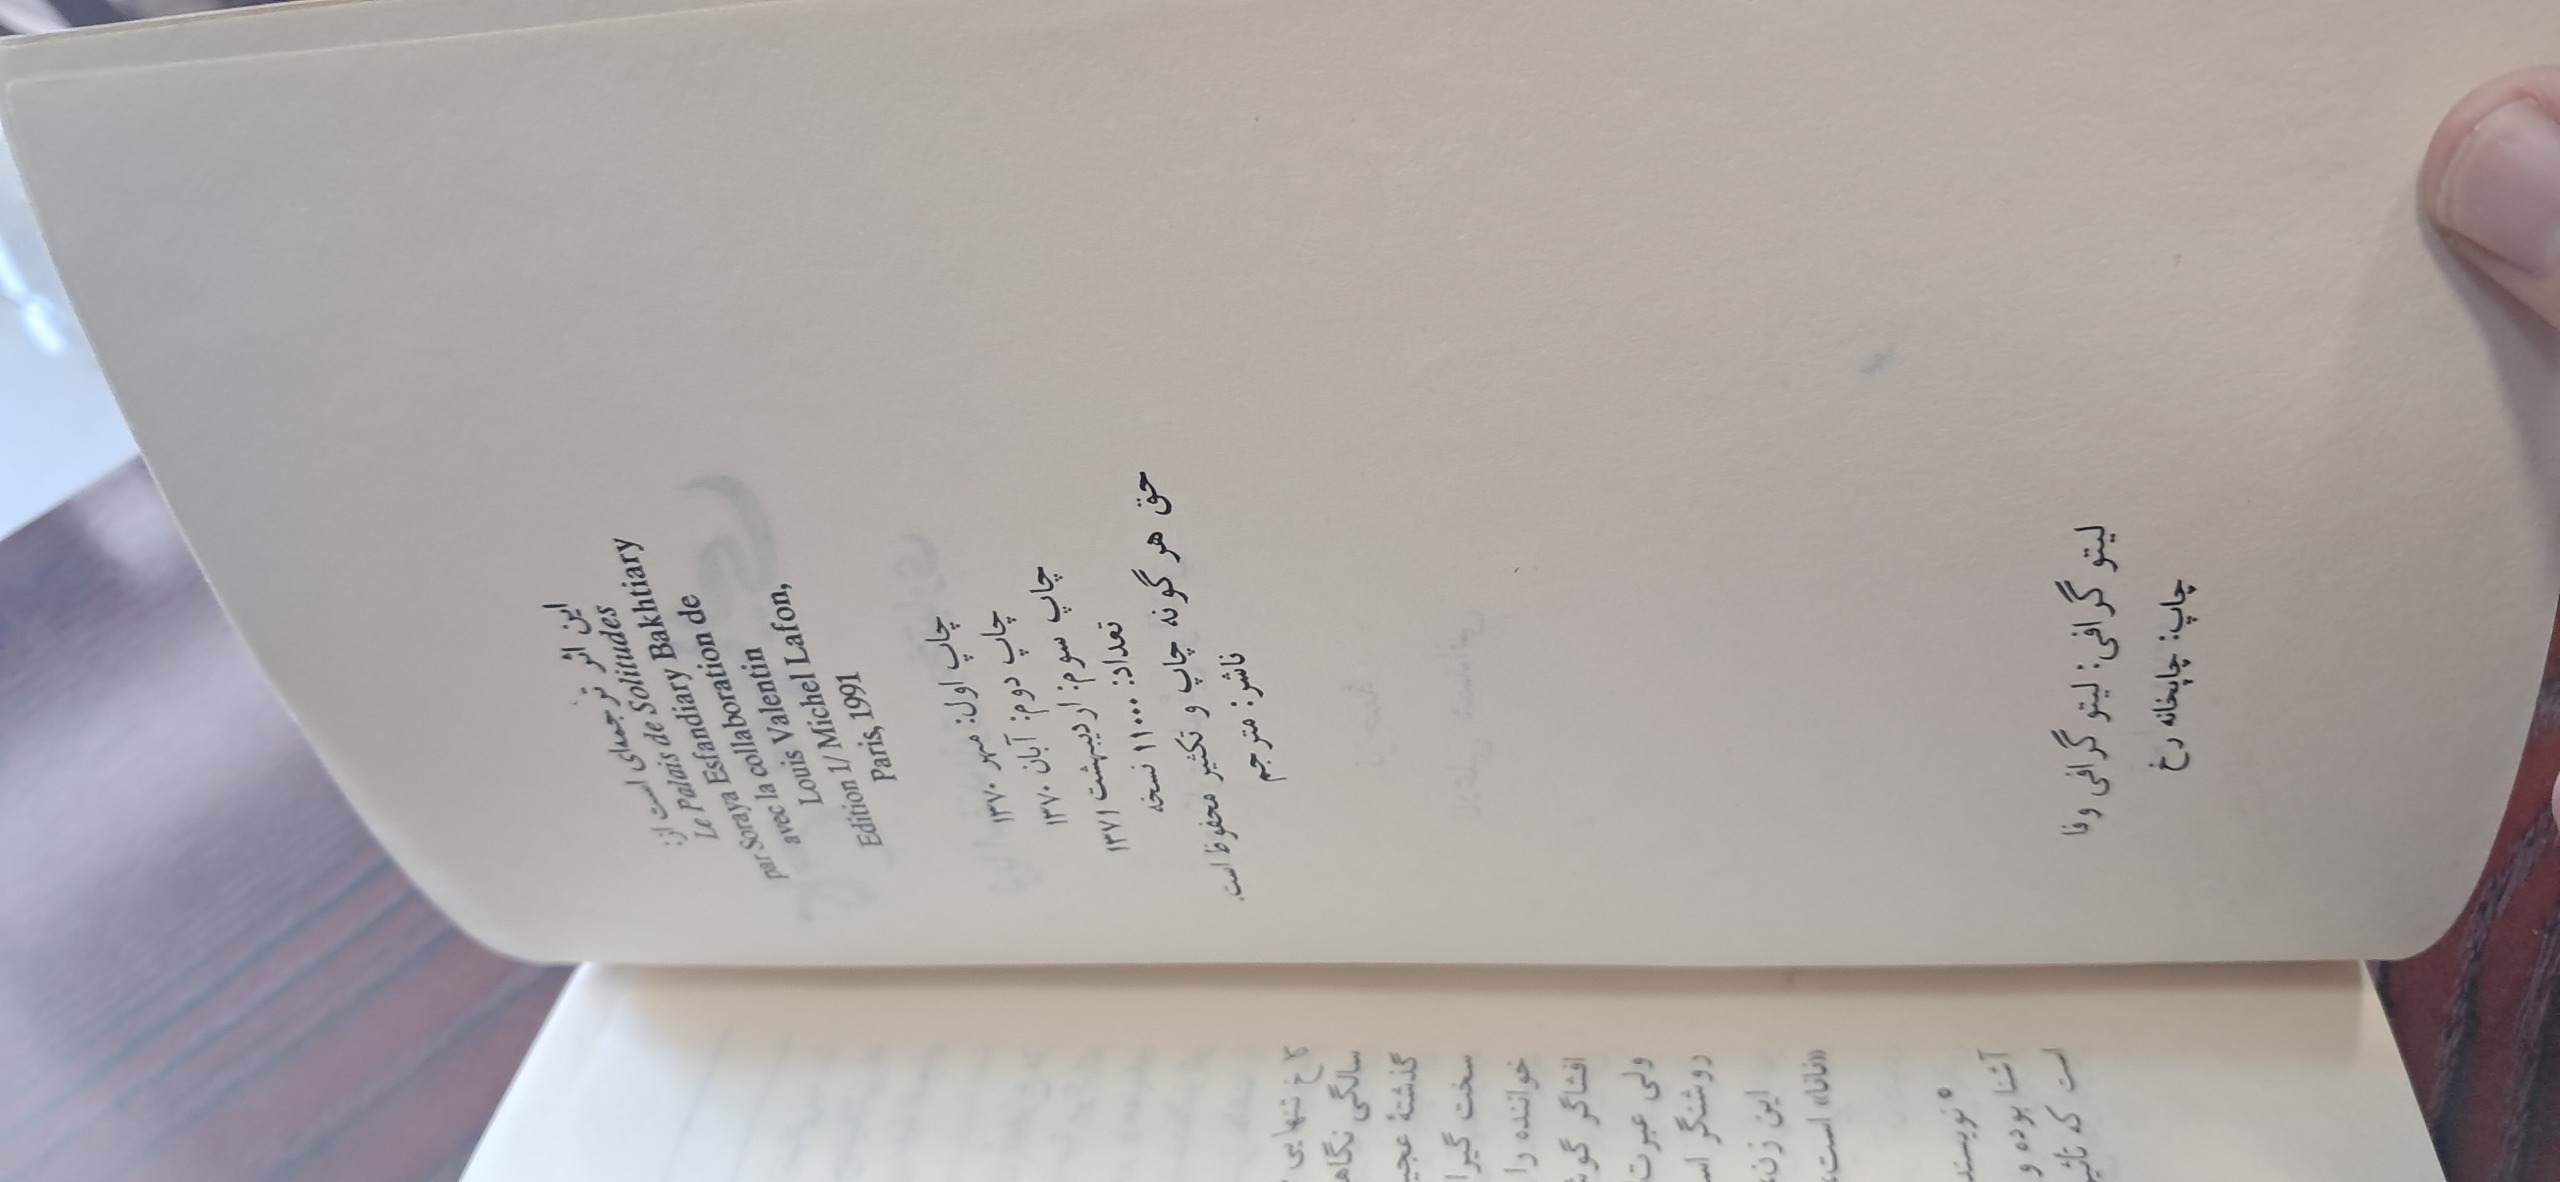 این اثر ترجمه‌ای است از:
Le Palais de Solitudes
par Soraya Esfandiary Bakhtiary
avec la collaboration de
Louis Valentin
Edition 1/ Michel Lafon,
Paris, 1991
چاپ اول: مهر ۱۳۷۰
چاپ دوم: آبان ۱۳۷۰
چاپ سوم: اردیبهشت ۱۳۷۱
تعداد: ۱۱۰۰۰ نسخه
حق هر گونه چاپ و تکثیر محفوظ است.
ناشر: مترجم
لیتو گرافی: لیتو گرافی وفا
چاپ: چاپخانه رخ
کاخ تنهایی
سالگی نگاه
گذشتهٔ عجیـ
سخت گیرا
خواننده را
افشاگر گو
ولی عبرت
روشنگر اسـ
این زن،
«نانا» است،
° نویسند
آشنا بوده و
است که تاثیر